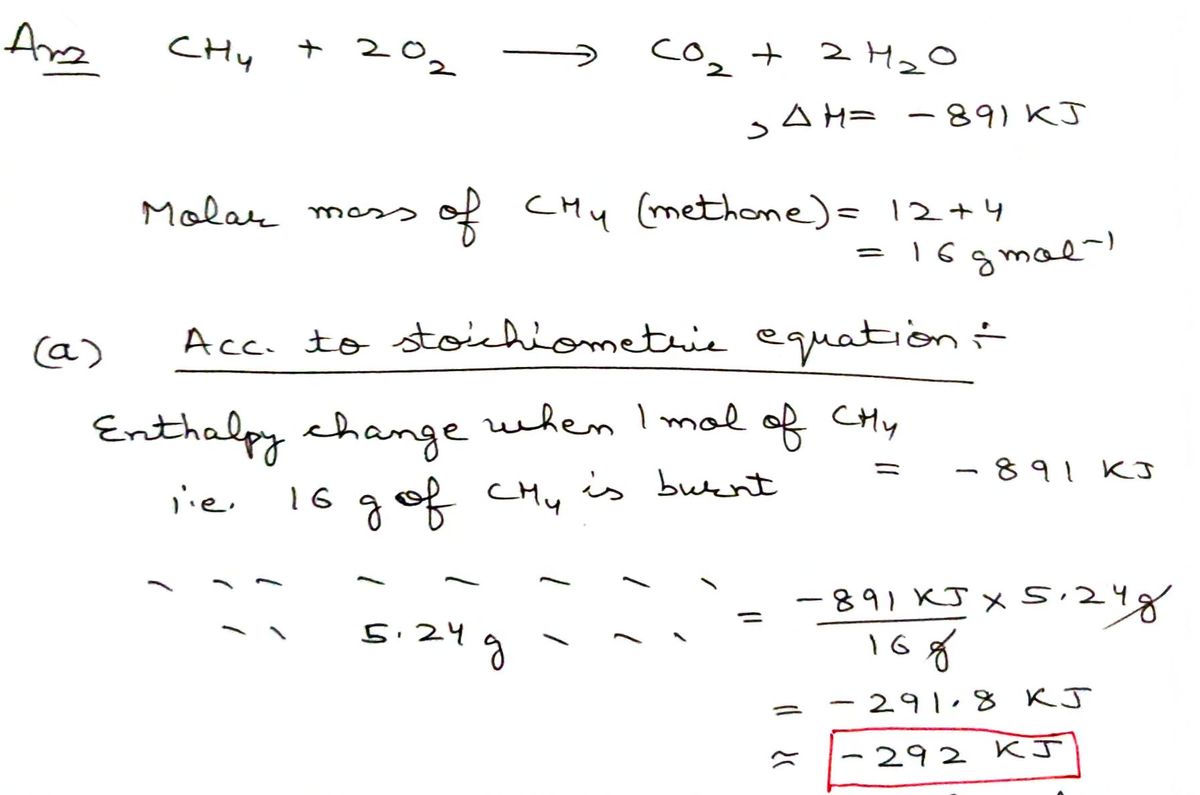 Ans CH₄ + 2O₂ ⟶ CO₂ + 2H₂O
, ΔH = -891 KJ
Molar mass of CH₄ (methane) = 12+4
= 16 g mol⁻¹
(a) Acc. to stoichiometric equation :-
Enthalpy change when 1 mol of CH₄
i.e. 16 g of CH₄ is burnt = -891 KJ
5.24 g = -891 KJ × 5.24 g / 16 g
= -291.8 KJ
≈ -292 KJ